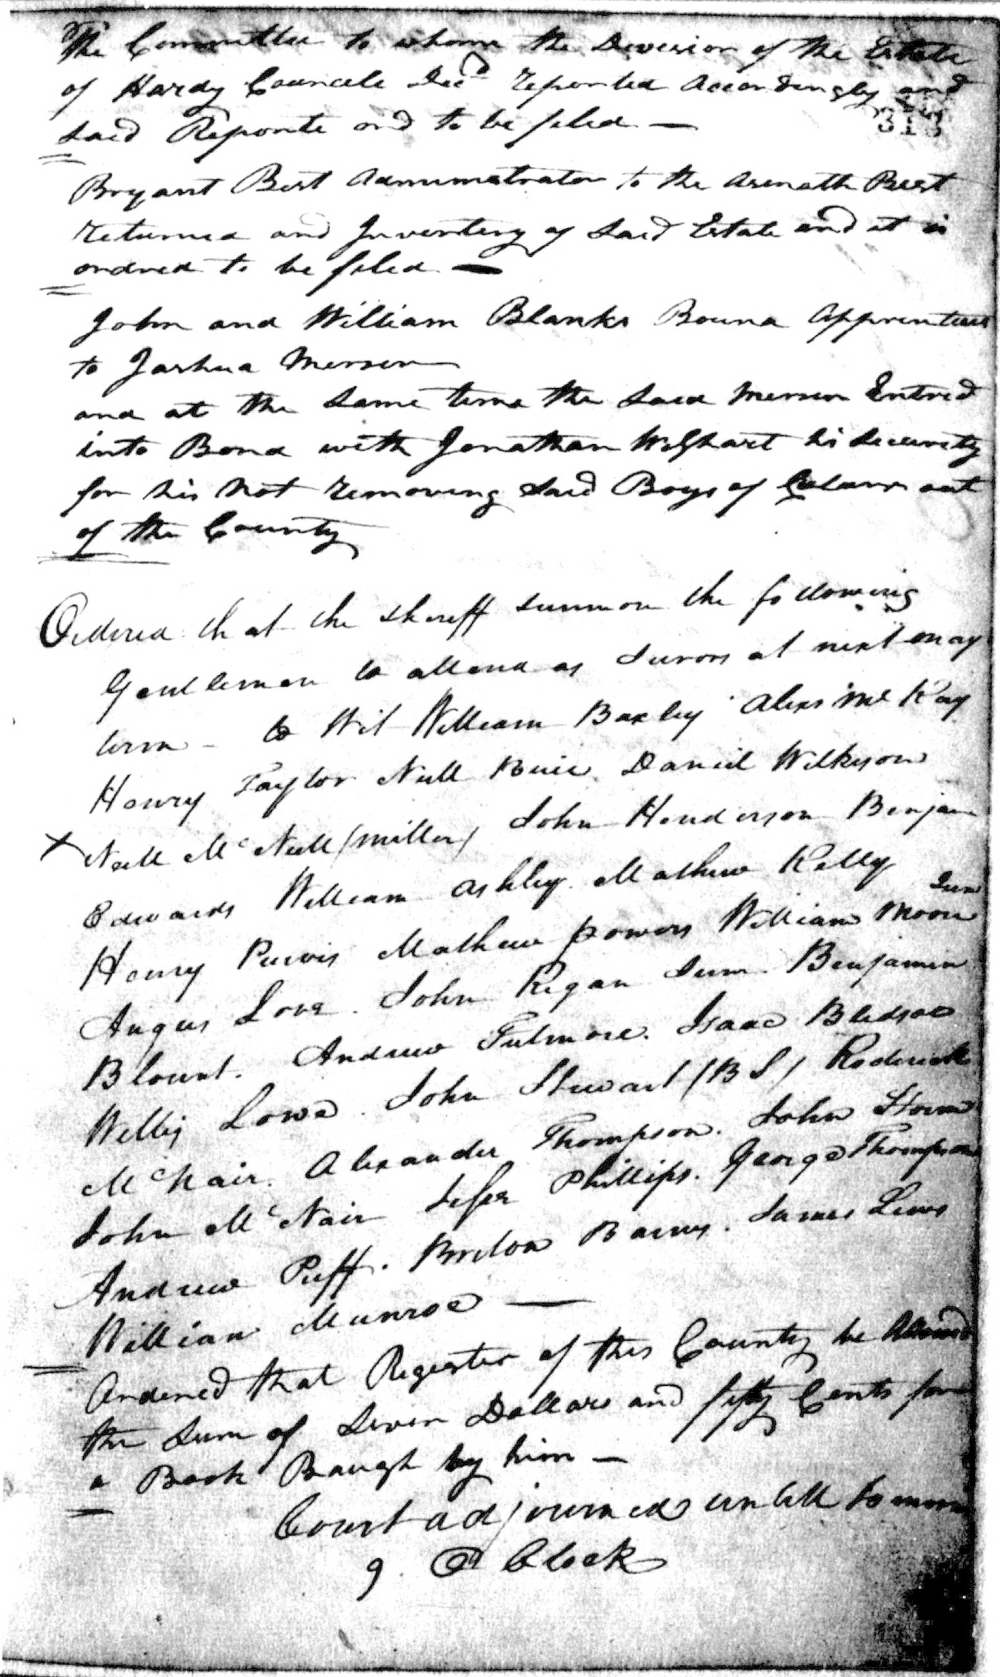 The Committee to whom the Devision of the Estate
of Hardy Councele Decd reported Accordingly and
313
said Reporte ord to be filed —
Bryant Best Administrator to the Asenath Best
returned and Inventery of said Estate and it is
ordred to be filed —
John and William Blanks Bound Apprentices
to Joshua Merser
and at the same time the said Merser Entred
into Bond with Jonathan Wishart his security
for his Not removing said Boys of Colour out
of the County
Ordered that the sheriff summon the following
Gentlemen to attend as Jurors at next may
term — to Wit William Baxley Alexr Mc Kay
Henry Taylor Neill Buie. Daniel Wilkison
x Neill Mc Neill (miller) John Henderson Benjam
Edwards William Ashley. Mathew Kelly
Henry Purvis Mathew powers William Moore Jun
Angus Love. John Regan Junr. Benjamin
Blount. Andrew Fulmore. Isaac Bledsoe
Willis Lowe. John Stewart (B S) Roderick
McNair. Alexander Thompson. John
John McNair Phillips. George Thompson
Andrew Puff. Briton Barns. James Lews
William Munroe —
Ordered that Register of this County be Allowed
the Sum of Seven Dollars and fifty Cents for
a Book Baugh by him —
Court adjourned untill to morrow
9 O Clock